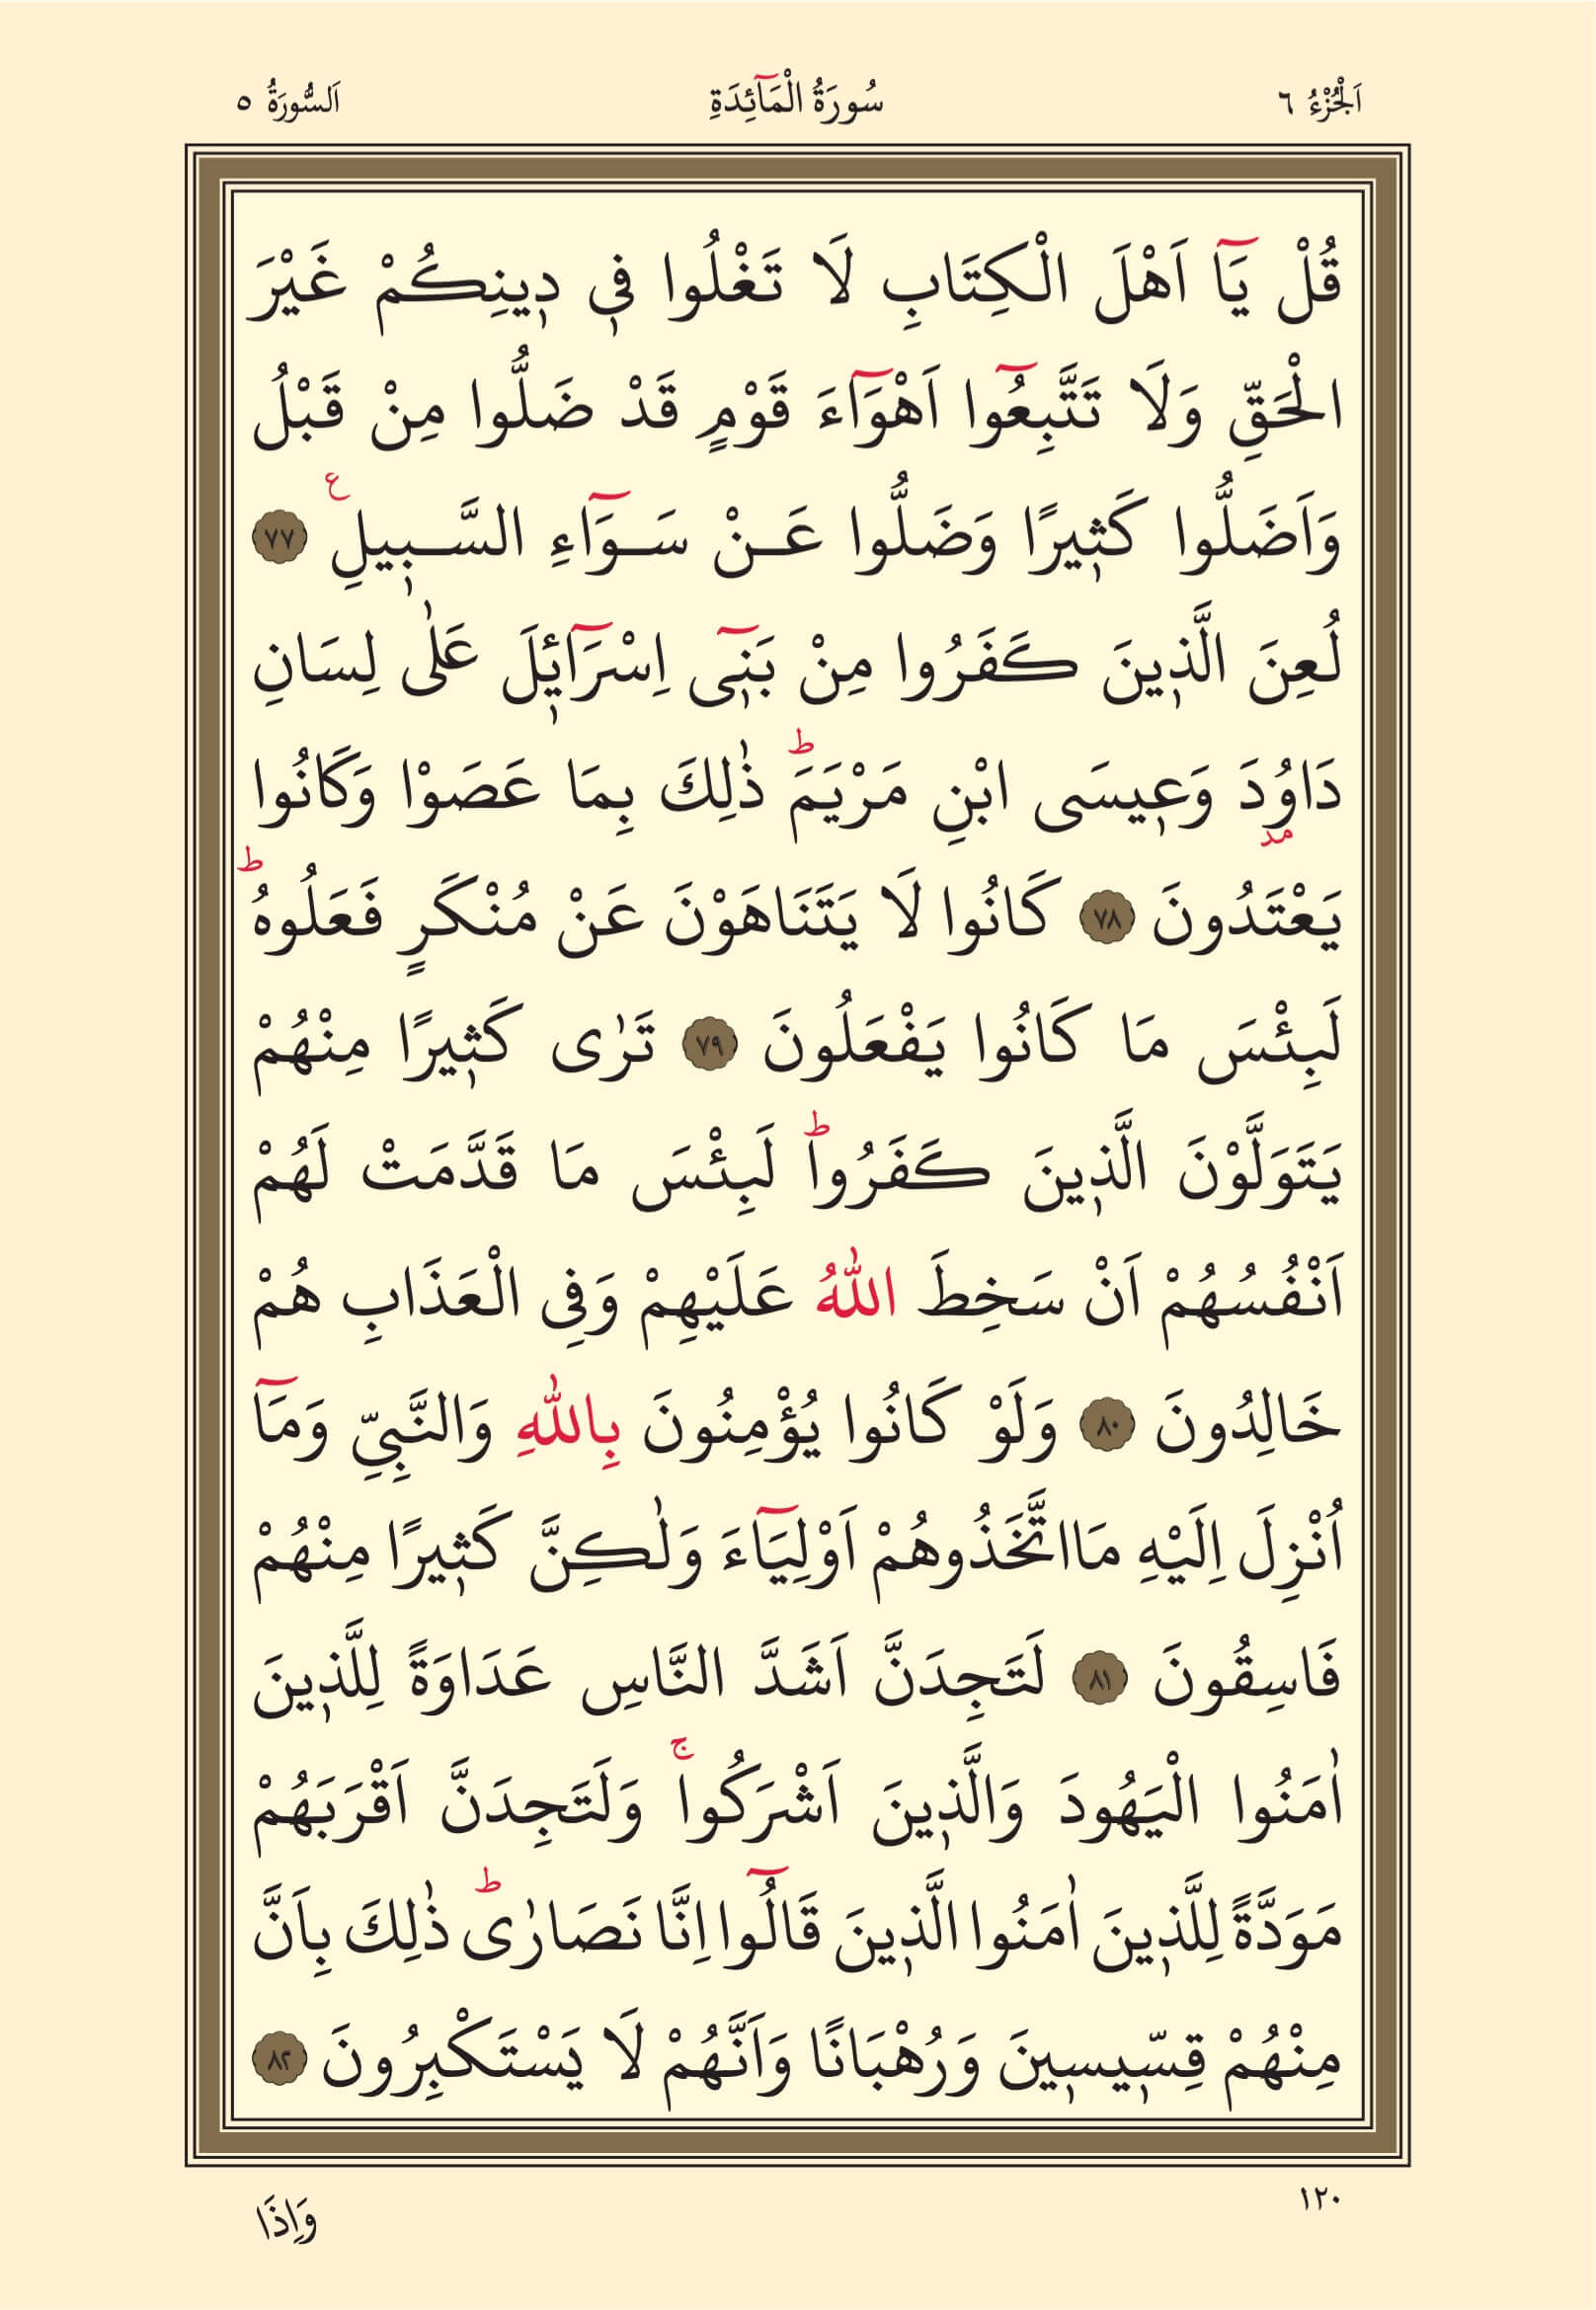 اَلْجُزْءُ ٦ سُورَةُ الْمَٓائِدَةِ اَلسُّورَةُ ٥
قُلْ يَٓا اَهْلَ الْكِتَابِ لَا تَغْلُوا ف۪ي د۪ينِكُمْ غَيْرَ
الْحَقِّ وَلَا تَتَّبِعُٓوا اَهْوَٓاءَ قَوْمٍ قَدْ ضَلُّوا مِنْ قَبْلُ
وَاَضَلُّوا كَث۪يرًا وَضَلُّوا عَنْ سَوَٓاءِ السَّب۪يلِ ع ﴿٧٧﴾
لُعِنَ الَّذ۪ينَ كَفَرُوا مِنْ بَن۪ٓي اِسْرَٓائ۪لَ عَلٰى لِسَانِ
دَاوُ۫دَ وَع۪يسَى ابْنِ مَرْيَمَۜ ذٰلِكَ بِمَا عَصَوْا وَكَانُوا
يَعْتَدُونَ ﴿٧٨﴾ كَانُوا لَا يَتَنَاهَوْنَ عَنْ مُنْكَرٍ فَعَلُوهُۜ
لَبِئْسَ مَا كَانُوا يَفْعَلُونَ ﴿٧٩﴾ تَرٰى كَث۪يرًا مِنْهُمْ
يَتَوَلَّوْنَ الَّذ۪ينَ كَفَرُواۜ لَبِئْسَ مَا قَدَّمَتْ لَهُمْ
اَنْفُسُهُمْ اَنْ سَخِطَ اللّٰهُ عَلَيْهِمْ وَفِي الْعَذَابِ هُمْ
خَالِدُونَ ﴿٨٠﴾ وَلَوْ كَانُوا يُؤْمِنُونَ بِاللّٰهِ وَالنَّبِيِّ وَمَٓا
اُنْزِلَ اِلَيْهِ مَااتَّخَذُوهُمْ اَوْلِيَٓاءَ وَلٰكِنَّ كَث۪يرًا مِنْهُمْ
فَاسِقُونَ ﴿٨١﴾ لَتَجِدَنَّ اَشَدَّ النَّاسِ عَدَاوَةً لِلَّذ۪ينَ
اٰمَنُوا الْيَهُودَ وَالَّذ۪ينَ اَشْرَكُواۚ وَلَتَجِدَنَّ اَقْرَبَهُمْ
مَوَدَّةً لِلَّذ۪ينَ اٰمَنُوا الَّذ۪ينَ قَالُٓوا اِنَّا نَصَارٰىۜ ذٰلِكَ بِاَنَّ
مِنْهُمْ قِسّ۪يس۪ينَ وَرُهْبَانًا وَاَنَّهُمْ لَا يَسْتَكْبِرُونَ ﴿٨٢﴾
١٢٠ وَاِذَا